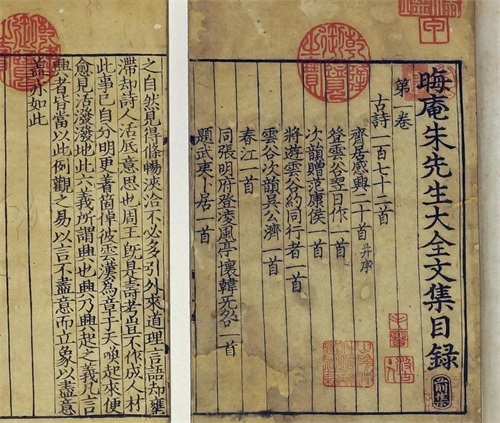 晦庵朱先生大全文集目録 前集
第一卷
古詩一百七十二首
齋居感興二十首 并序
登雲谷翌日作一首
次韻贈范康侯一首
將遊雲谷約同行者一首
雲谷次韻吳公濟一首
春江一首
同張明府登凌風亭懷韓无咎一首
題武夷卜居一首
乾隆御覽之寶
之自然見得條暢浹洽不必多引外來道理言語却壅
滯却詩人活底意思也周王既是壽考豈不作成人材
此事已自分明更著箇倬彼雲漢為章于天喚起來便
愈見活潑潑地此六義所謂興也興乃興起之義凡言
興者皆當以此例觀之易以言不盡意而立象以盡意
蓋亦如此